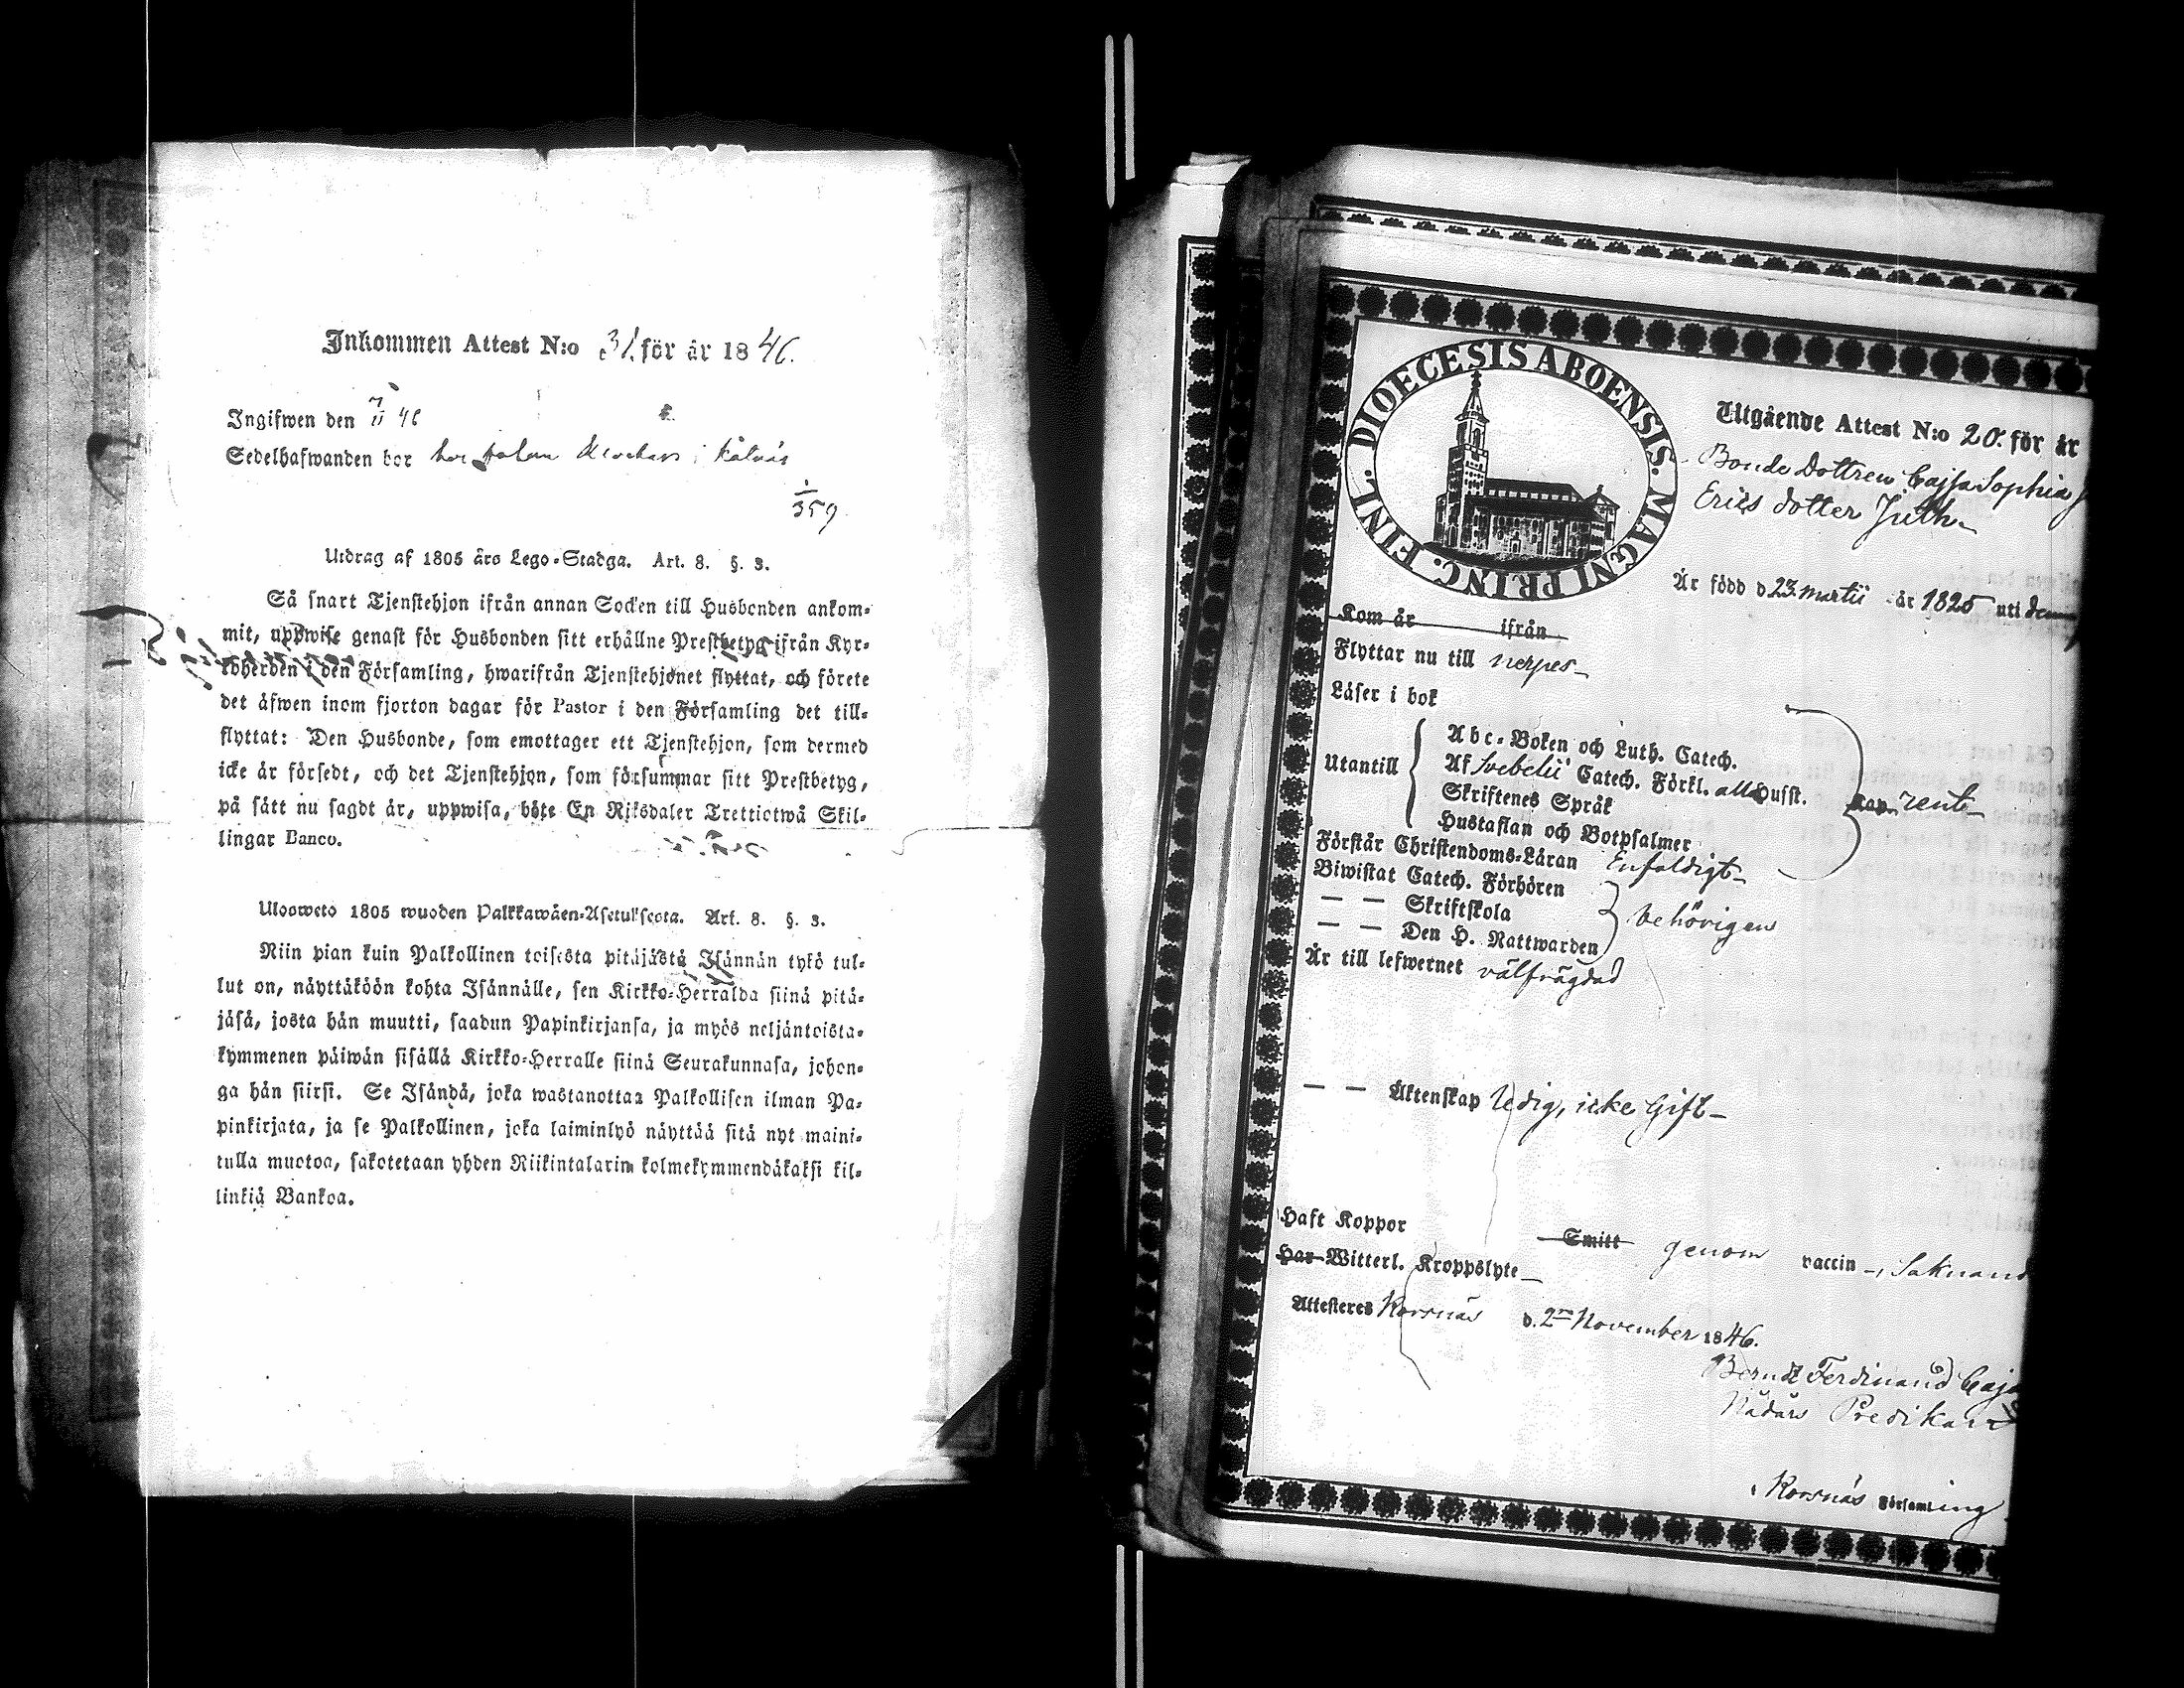 Inkommen Attest N:o 31. för år 1846.
Ingifwen den 7/11 46
Sedelhafwanden bor hos Johan i Kalnäs
1/359
Utdrag af 1805 års Lego-Stadga. Art. 8. §. 3.
Så snart Tjenstehjon ifrån annan Socken till Husbonden ankom-
mit, uppwise genast för Husbonden sitt erhållne Prestbetyg ifrån Kyr-
koherden i den Församling, hwarifrån Tjenstehjonet flyttat, och förete
det äfwen inom fjorton dagar för Pastor i den Församling det till-
flyttat: Den Husbonde, som emottager ett Tjenstehjon, som dermed
icke är försedt, och det Tjenstehjon, som försummar sitt Prestbetyg,
på sätt nu sagdt är, uppwisa, böte En Riksdaler Trettiotwå Skil-
lingar Banco.
Ulosweto 1805 wuoden Palkkawäen-Asetuksesta. Art. 8. §. 3.
Niin pian kuin Palkollinen toisesta pitäjästä Isännän tykö tul-
lut on, näyttäköön kohta Isännälle, sen Kirkko-Herralda siinä pitä-
jäsä, josta hän muutti, saadun Papinkirjansa, ja myös neljäntoista-
kymmenen päiwän sisällä Kirkko-Herralle siinä Seurakunnasa, johon-
ga hän siirsi. Se Isändä, joka wastanottaa Palkollisen ilman Pa-
pinkirjata, ja se Palkollinen, joka laiminlyö näyttää sitä nyt maini-
tulla muotoa, sakotetaan yhden Riikintalarin kolmekymmendäkaksi kil-
linkiä Bankoa.
DIOECESIS ABOENSIS. MAGNI PRINC. FINL.
Utgående Attest N:o 20. för år
Bonde Dottren Cajsa Sophia
Erics dotter Juth
Är född d 23 martii år 1825 uti den
Kom år ifrån
Flyttar nu till nerpes
Läser i bok
Utantill
Abc-Boken och Luth. Catech.
Af Svebelii Catech. Förkl. alla Hufst.
Skriftenes Språk
Hustaflan och Botpsalmer
Kap. rent
Förstår Christendoms-Läran Enfaldigt
Biwistat Catech. Förhören
— — Skriftskola
— — Den H. Nattwarden
behörigen
Är till lefwernet välfrägdad
— — Äktenskap ledig, icke Gift
Haft Koppor Smitt genom vaccin
Har Witterl. Kroppslyte Saknand
Attesteras Korsnäs d. 2 November 1846.
Berndt Ferdinand Caj
Nådårs Predikant
i Korsnäs Församling